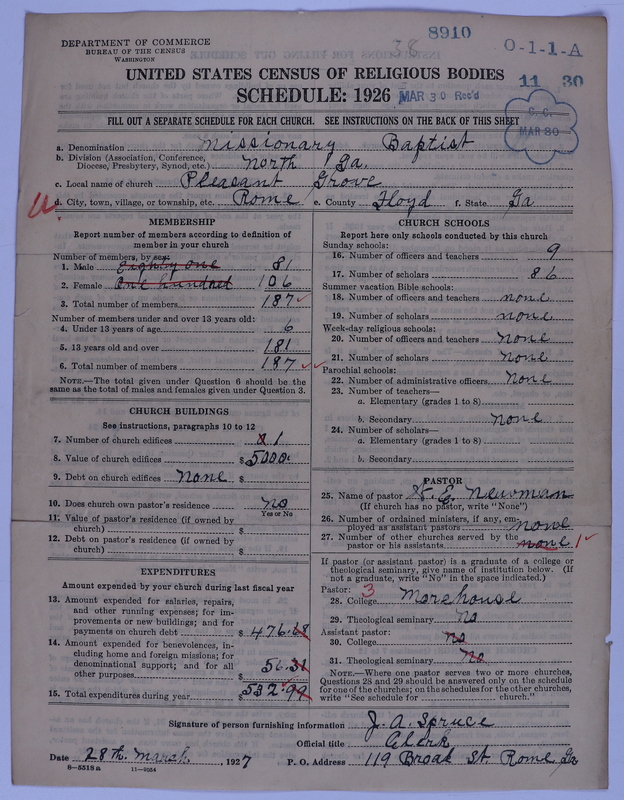 DEPARTMENT OF COMMERCE
BUREAU OF THE CENSUS
WASHINGTON
38
8910
O-1-1-A
UNITED STATES CENSUS OF RELIGIOUS BODIES
11 30
SCHEDULE: 1926
MAR 30 Rec'd
S.C.
MAR 30
FILL OUT A SEPARATE SCHEDULE FOR EACH CHURCH. SEE INSTRUCTIONS ON THE BACK OF THIS SHEET
a. Denomination Missionary Baptist
b. Division (Association, Conference,
Diocese, Presbytery, Synod, etc.) North Ga.
c. Local name of church Pleasant Grove
d. City, town, village, or township, etc. Rome e. County Floyd f. State Ga
MEMBERSHIP
Report number of members according to definition of
member in your church
Number of members, by sex:
1. Male eighty one 81
2. Female one hundred 106
3. Total number of members 187
Number of members under and over 13 years old:
4. Under 13 years of age 6
5. 13 years old and over 181
6. Total number of members 187
NOTE.—The total given under Question 6 should be the
same as the total of males and females given under Question 3.
CHURCH BUILDINGS
See instructions, paragraphs 10 to 12
7. Number of church edifices 1
8. Value of church edifices $5000.
9. Debt on church edifices None $
10. Does church own pastor's residence no
Yes or No
11. Value of pastor's residence (if owned by
church) $
12. Debt on pastor's residence (if owned by
church) $
EXPENDITURES
Amount expended by your church during last fiscal year
13. Amount expended for salaries, repairs,
and other running expenses; for im-
provements or new buildings; and for
payments on church debt $ 476.68
14. Amount expended for benevolences, in-
cluding home and foreign missions; for
denominational support; and for all
other purposes 56.31
15. Total expenditures during year $532.99
CHURCH SCHOOLS
Report here only schools conducted by this church
Sunday schools:
16. Number of officers and teachers 9
17. Number of scholars 86
Summer vacation Bible schools:
18. Number of officers and teachers none
19. Number of scholars none
Week-day religious schools:
20. Number of officers and teachers None
21. Number of scholars None
Parochial schools:
22. Number of administrative officers None
23. Number of teachers—
a. Elementary (grades 1 to 8)
b. Secondary none
24. Number of scholars—
a. Elementary (grades 1 to 8)
b. Secondary
PASTOR
25. Name of pastor E. Newman
(If church has no pastor, write "None")
26. Number of ordained ministers, if any, em-
ployed as assistant pastors none
27. Number of other churches served by the
pastor or his assistants none 1
If pastor (or assistant pastor) is a graduate of a college or
theological seminary, give name of institution below. (If
not a graduate, write "No" in the space indicated.)
Pastor: 3
28. College Morehouse
29. Theological seminary No
Assistant pastor:
30. College no
31. Theological seminary No
NOTE.—Where one pastor serves two or more churches,
Questions 28 and 29 should be answered only on the schedule
for one of the churches; on the schedules for the other churches,
write "See schedule for church."
Signature of person furnishing information J. A. Spruce
Official title Clerk
Date 28th. March, 1927 P. O. Address 119 Broad St. Rome Ga
8—5518a 11—9054